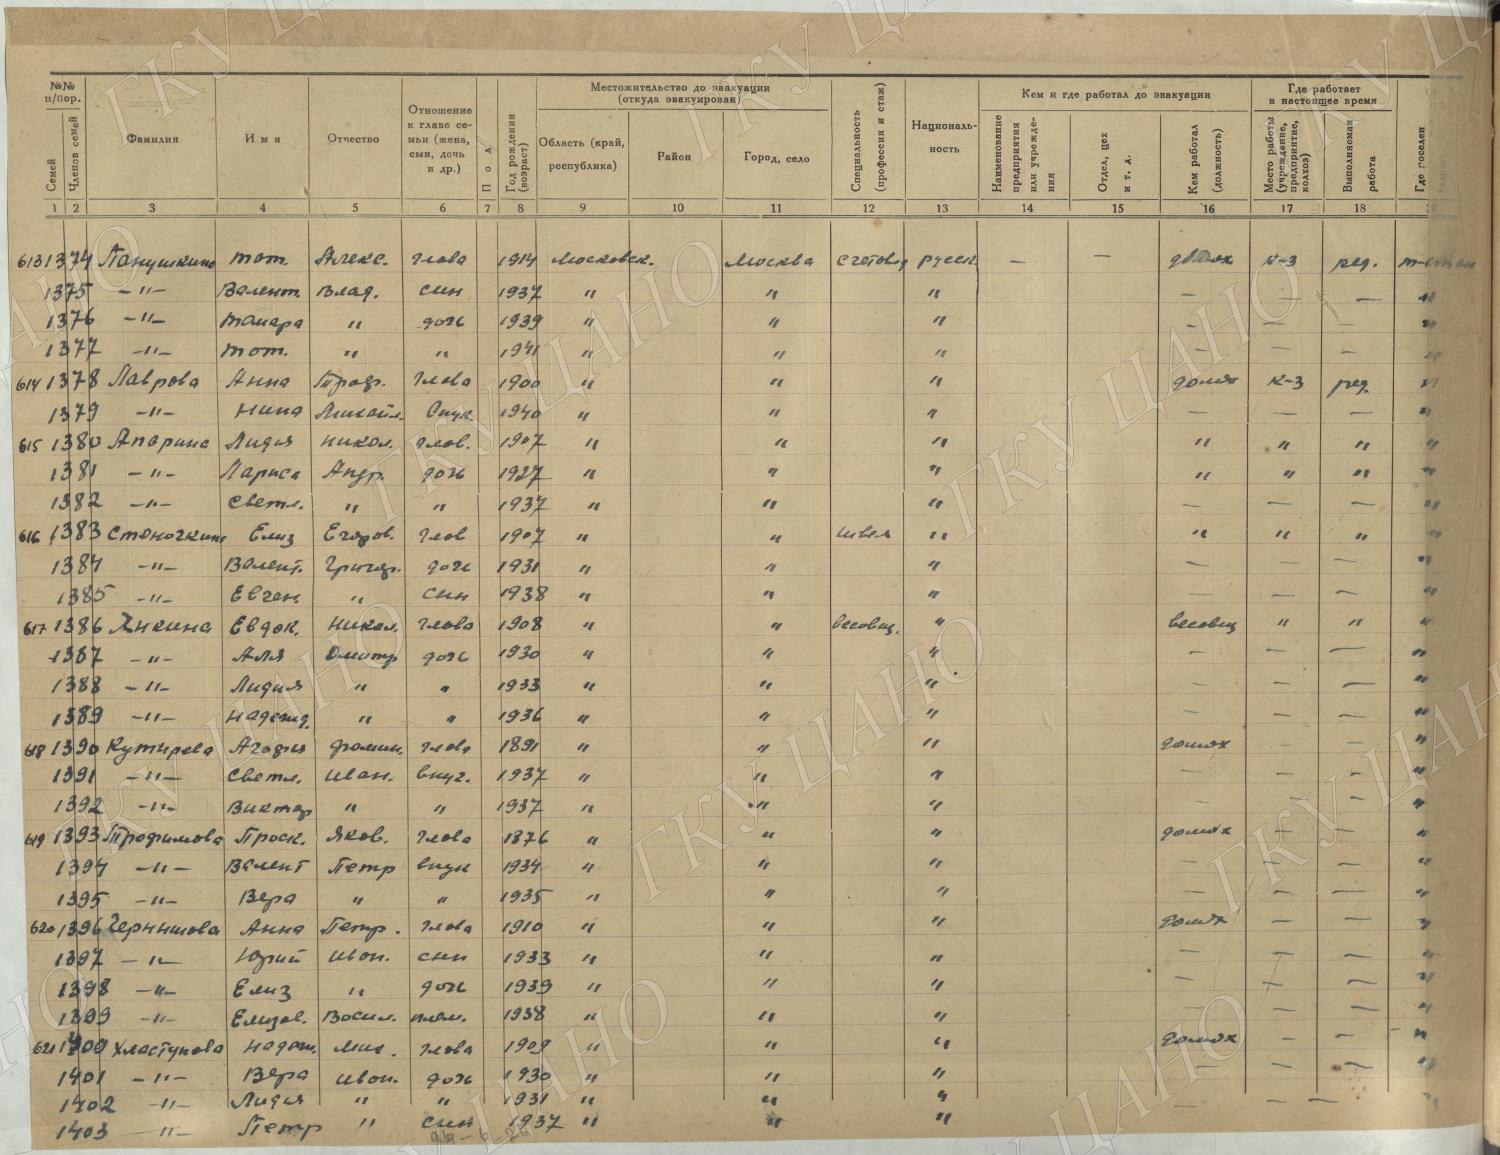 №№ п/пор.
Семей
Членов семей
Фамилия
Имя
Отчество
Отношение к главе семьи (жена, сын, дочь и др.)
Пол
Год рождения (возраст)
Местожительство до эвакуации (откуда эвакуирован)
Область (край, республика)
Район
Город, село
Специальность (профессия и стаж)
Националь-ность
Кем и где работал до эвакуации
Наименование предприятия или учрежде-ния
Отдел, цех и т. д.
Кем работал (должность)
Где работает в настоящее время
Место работы (учреждение, предприятие, колхоз)
Выполняемая работа
Где поселен
1 2 3 4 5 6 7 8 9 10 11 12 13 14 15 16 17 18 19
613 1374 Панушкина тат. Алекс. глава 1914 Московск. Москва счетовод русск. — — к-3 ряд.
1375 —"— Валент. Влад. сын 1937 " " " — — — "
1376 —"— Тамара " дочь 1939 " " " — — — "
1377 —"— тат. " " 1941 " " " — — — "
614 1378 Лаврова Анна Троф. глава 1900 " " " домох к-3 ряд. "
1379 —"— Нина Михайл. внук. 1940 " " " — — — "
615 1380 Апарина Лидия Никол. глав. 1907 " " " " " " "
1381 —"— Лариса Андр. дочь 1927 " " " " " " "
1382 —"— Светл. " " 1937 " " " — — — "
616 1383 Елиз Егоров. глав 1907 " " швея " " " " "
1384 —"— Валент. Григор. дочь 1931 " " " — — — "
1385 —"— Евген. " сын 1938 " " " — — — "
617 1386 Янкина Евдок. Никол. глава 1908 " " весовщ. " весовщ " " "
1387 —"— Аля Дмитр дочь 1930 " " " — — — "
1388 —"— Лидия " " 1933 " " " — — — "
1389 —"— Надежд. " " 1936 " " " — — — "
618 1390 Кутырева Агафия Фомин. глава 1891 " " " домох — — "
1391 —"— Светл. Иван. внуч. 1937 " " " — — — "
1392 —"— Виктор " " 1937 " " " — — — "
619 1393 Трофимова Проск. Яков. глава 1876 " " " домох — — "
1394 —"— Валент Петр внук 1934 " " " — — — "
1395 —"— Вера " " 1935 " " " — — — "
620 1396 Чернышова Анна Петр. глава 1910 " " " домох — — "
1397 —"— Юрий Иван. сын 1933 " " " — — — "
1398 —"— Елиз " дочь 1939 " " " — — — "
1399 —"— Елизав. Васил. плем. 1938 " " " — — — "
621 1400 Хластунова Надеж. Мих. глава 1909 " " " домох — — "
1401 —"— Вера Иван. дочь 1930 " " " — — "
1402 —"— Лидия " " 1931 " " " — — — "
1403 —"— Петр " сын 1937 " " "
ГКУ ЦАНО